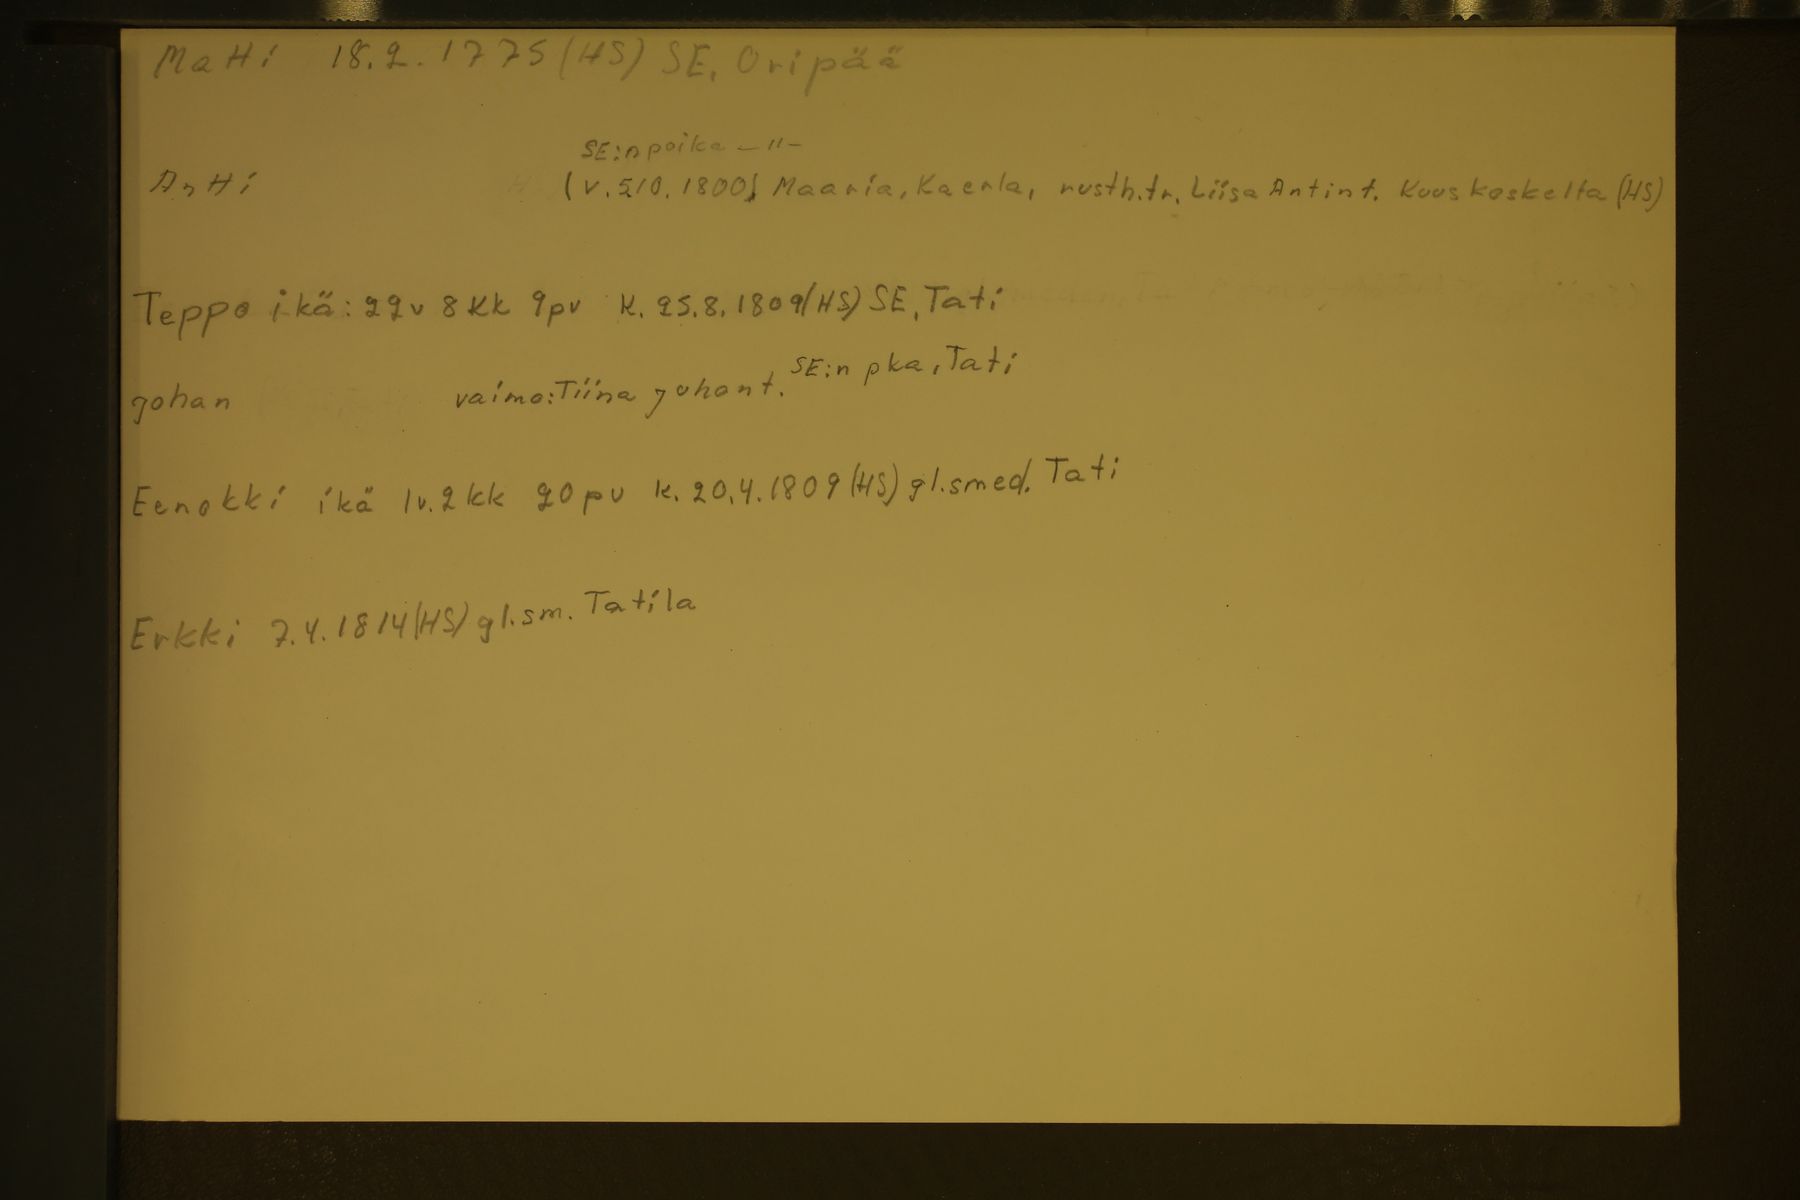 Matti 18.2.1775 (HS) SE, Oripää
SE:n poika —"—
Antti (v. 5.10.1800) Maaria, Kaerla, rusth.tr. Liisa Antint. Kuuskoskelta (HS)
Teppo ikä: 22v 8kk 9pv k. 25.8.1809 (HS) SE, Tati
Johan vaimo: Tiina Juhont. SE:n pka, Tati
Eenokki ikä 1v. 2kk 20pv k. 20.4.1809 (HS) gl.smed. Tati
Erkki 7.4.1814 (HS) gl.sm. Tatila